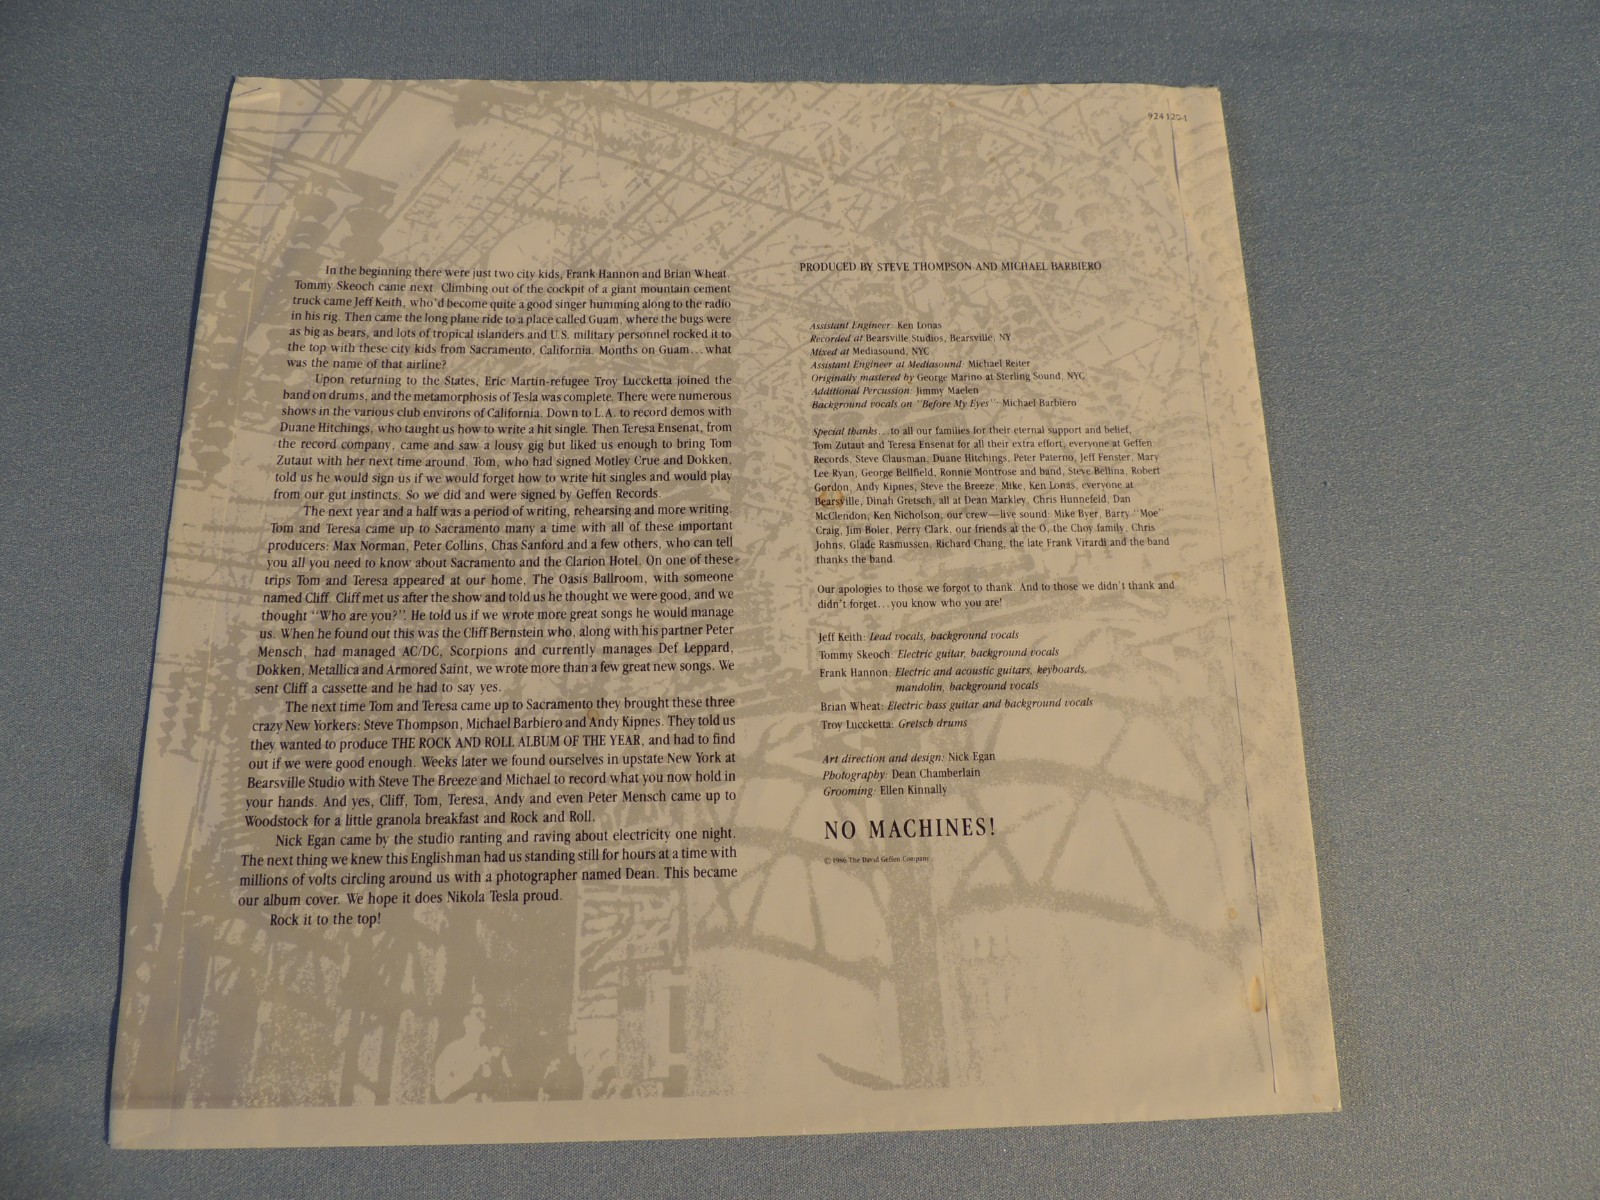 924 120-1
In the beginning there were just two city kids, Frank Hannon and Brian Wheat.
Tommy Skeoch came next. Climbing out of the cockpit of a giant mountain cement
truck came Jeff Keith, who'd become quite a good singer humming along to the radio
in his rig. Then came the long plane ride to a place called Guam, where the bugs were
as big as bears, and lots of tropical islanders and U.S. military personnel rocked it to
the top with these city kids from Sacramento, California. Months on Guam...what
was the name of that airline?
Upon returning to the States, Eric Martin-refugee Troy Luccketta joined the
band on drums, and the metamorphosis of Tesla was complete. There were numerous
shows in the various club environs of California. Down to L.A. to record demos with
Duane Hitchings, who taught us how to write a hit single. Then Teresa Ensenat, from
the record company, came and saw a lousy gig but liked us enough to bring Tom
Zutaut with her next time around. Tom, who had signed Motley Crue and Dokken,
told us he would sign us if we would forget how to write hit singles and would play
from our gut instincts. So we did and were signed by Geffen Records.
The next year and a half was a period of writing, rehearsing and more writing.
Tom and Teresa came up to Sacramento many a time with all of these important
producers: Max Norman, Peter Collins, Chas Sanford and a few others, who can tell
you all you need to know about Sacramento and the Clarion Hotel. On one of these
trips Tom and Teresa appeared at our home, The Oasis Ballroom, with someone
named Cliff. Cliff met us after the show and told us he thought we were good, and we
thought "Who are you?". He told us if we wrote more great songs he would manage
us. When he found out this was the Cliff Bernstein who, along with his partner Peter
Mensch, had managed AC/DC, Scorpions and currently manages Def Leppard,
Dokken, Metallica and Armored Saint, we wrote more than a few great new songs. We
sent Cliff a cassette and he had to say yes.
The next time Tom and Teresa came up to Sacramento they brought these three
crazy New Yorkers: Steve Thompson, Michael Barbiero and Andy Kipnes. They told us
they wanted to produce THE ROCK AND ROLL ALBUM OF THE YEAR, and had to find
out if we were good enough. Weeks later we found ourselves in upstate New York at
Bearsville Studio with Steve The Breeze and Michael to record what you now hold in
your hands. And yes, Cliff, Tom, Teresa, Andy and even Peter Mensch came up to
Woodstock for a little granola breakfast and Rock and Roll.
Nick Egan came by the studio ranting and raving about electricity one night.
The next thing we knew this Englishman had us standing still for hours at a time with
millions of volts circling around us with a photographer named Dean. This became
our album cover. We hope it does Nikola Tesla proud.
Rock it to the top!
PRODUCED BY STEVE THOMPSON AND MICHAEL BARBIERO
Assistant Engineer: Ken Lonas
Recorded at Bearsville Studios, Bearsville, NY
Mixed at Mediasound, NYC
Assistant Engineer at Mediasound: Michael Reiter
Originally mastered by George Marino at Sterling Sound, NYC
Additional Percussion: Jimmy Maelen
Background vocals on "Before My Eyes": Michael Barbiero
Special thanks...to all our families for their eternal support and belief,
Tom Zutaut and Teresa Ensenat for all their extra effort, everyone at Geffen
Records, Steve Clausman, Duane Hitchings, Peter Paterno, Jeff Fenster, Mary
Lee Ryan, George Bellfield, Ronnie Montrose and band, Steve Bellina, Robert
Gordon, Andy Kipnes, Steve the Breeze, Mike, Ken Lonas, everyone at
Bearsville, Dinah Gretsch, all at Dean Markley, Chris Hunnefeld, Dan
McClendon, Ken Nicholson, our crew—live sound: Mike Byer, Barry "Moe"
Craig, Jim Boler, Perry Clark, our friends at the O, the Choy family, Chris
Johns, Glade Rasmussen, Richard Chang, the late Frank Virardi and the band
thanks the band.
Our apologies to those we forgot to thank. And to those we didn't thank and
didn't forget...you know who you are!
Jeff Keith: Lead vocals, background vocals
Tommy Skeoch: Electric guitar, background vocals
Frank Hannon: Electric and acoustic guitars, keyboards,
mandolin, background vocals
Brian Wheat: Electric bass guitar and background vocals
Troy Luccketta: Gretsch drums
Art direction and design: Nick Egan
Photography: Dean Chamberlain
Grooming: Ellen Kinnally
NO MACHINES!
© 1986 The David Geffen Company